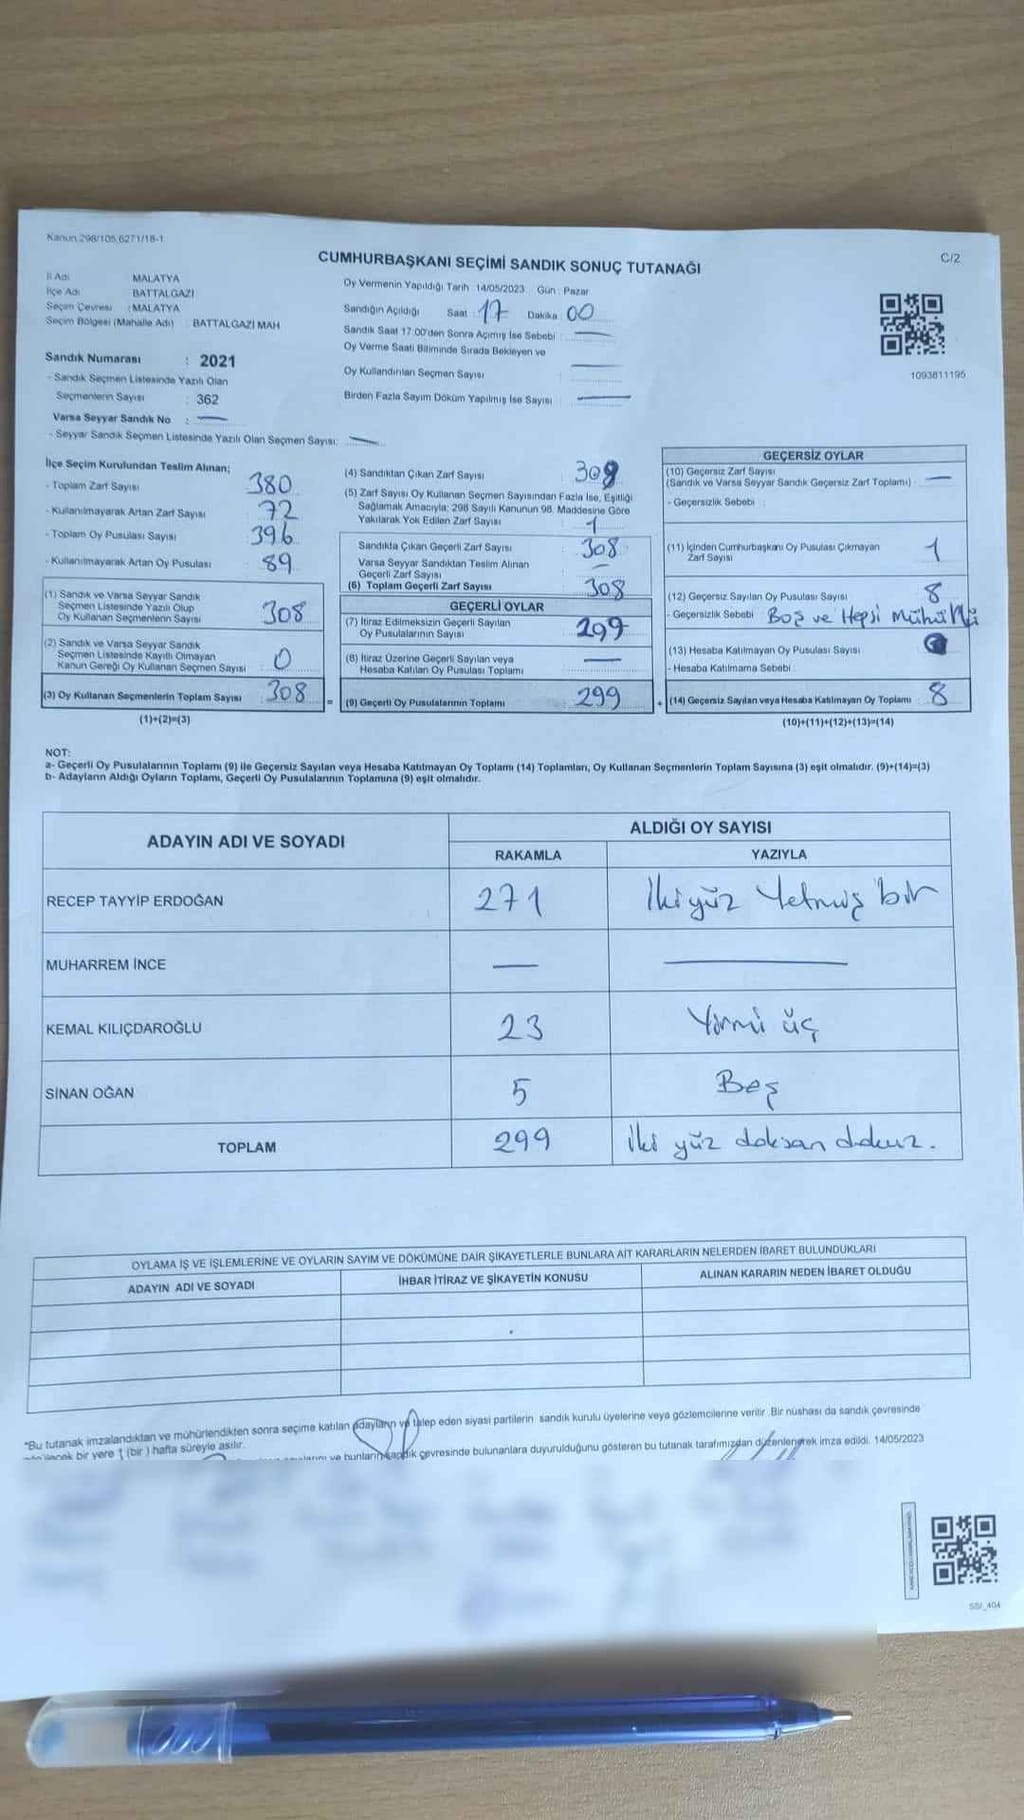 Kanun:298/105,6271/18-1
CUMHURBAŞKANI SEÇİMİ SANDIK SONUÇ TUTANAĞI
C/2
İl Adı MALATYA
İlçe Adı BATTALGAZİ
Seçim Çevresi : MALATYA
Seçim Bölgesi (Mahalle Adı) : BATTALGAZİ MAH
Sandık Numarası : 2021
- Sandık Seçmen Listesinde Yazılı Olan
Seçmenlerin Sayısı : 362
Varsa Seyyar Sandık No : —
- Seyyar Sandık Seçmen Listesinde Yazılı Olan Seçmen Sayısı: —
Oy Vermenin Yapıldığı Tarih : 14/05/2023 Gün : Pazar
Sandığın Açıldığı Saat : 17 Dakika : 00
Sandık Saat 17:00'den Sonra Açımış İse Sebebi : —
Oy Verme Saati Bitiminde Sırada Bekleyen ve
Oy Kullandırılan Seçmen Sayısı —
Birden Fazla Sayım Döküm Yapılmış İse Sayısı : —
1093811195
İlçe Seçim Kurulundan Teslim Alınan;
- Toplam Zarf Sayısı : 380
- Kullanılmayarak Artan Zarf Sayısı : 72
- Toplam Oy Pusulası Sayısı : 396
- Kullanılmayarak Artan Oy Pusulası : 89
(1) Sandık ve Varsa Seyyar Sandık
Seçmen Listesinde Yazılı Olup
Oy Kullanan Seçmenlerin Sayısı : 308
(2) Sandık ve Varsa Seyyar Sandık
Seçmen Listesinde Kayıtlı Olmayan
Kanun Gereği Oy Kullanan Seçmen Sayısı : 0
(3) Oy Kullanan Seçmenlerin Toplam Sayısı : 308
(1)+(2)=(3)
(4) Sandıktan Çıkan Zarf Sayısı : 309
(5) Zarf Sayısı Oy Kullanan Seçmen Sayısından Fazla İse, Eşitliği
Sağlamak Amacıyla; 298 Sayılı Kanunun 98. Maddesine Göre
Yakılarak Yok Edilen Zarf Sayısı : 1
Sandıkta Çıkan Geçerli Zarf Sayısı : 308
Varsa Seyyar Sandıktan Teslim Alınan
Geçerli Zarf Sayısı : —
(6) Toplam Geçerli Zarf Sayısı : 308
GEÇERLİ OYLAR
(7) İtiraz Edilmeksizin Geçerli Sayılan
Oy Pusulalarının Sayısı : 299
(8) İtiraz Üzerine Geçerli Sayılan veya
Hesaba Katılan Oy Pusulası Toplamı : —
= (9) Geçerli Oy Pusulalarının Toplamı : 299
GEÇERSİZ OYLAR
(10) Geçersiz Zarf Sayısı
(Sandık ve Varsa Seyyar Sandık Geçersiz Zarf Toplamı) : —
- Geçersizlik Sebebi :
(11) İçinden Cumhurbaşkanı Oy Pusulası Çıkmayan
Zarf Sayısı : 1
(12) Geçersiz Sayılan Oy Pusulası Sayısı : 8
- Geçersizlik Sebebi : Boş ve Hepsi Mühürlü
(13) Hesaba Katılmayan Oy Pusulası Sayısı
- Hesaba Katılmama Sebebi :
+ (14) Geçersiz Sayılan veya Hesaba Katılmayan Oy Toplamı : 8
(10)+(11)+(12)+(13)=(14)
NOT:
a- Geçerli Oy Pusulalarının Toplamı (9) ile Geçersiz Sayılan veya Hesaba Katılmayan Oy Toplamı (14) Toplamları, Oy Kullanan Seçmenlerin Toplam Sayısına (3) eşit olmalıdır. (9)+(14)=(3)
b- Adayların Aldığı Oyların Toplamı, Geçerli Oy Pusulalarının Toplamına (9) eşit olmalıdır.
ADAYIN ADI VE SOYADI ALDIĞI OY SAYISI
RAKAMLA YAZIYLA
RECEP TAYYİP ERDOĞAN 271 İki yüz Yetmiş bir
MUHARREM İNCE — —
KEMAL KILIÇDAROĞLU 23 Yirmi üç
SİNAN OĞAN 5 Beş
TOPLAM 299 İki yüz doksan dokuz.
OYLAMA İŞ VE İŞLEMLERİNE VE OYLARIN SAYIM VE DÖKÜMÜNE DAİR ŞİKAYETLERLE BUNLARA AİT KARARLARIN NELERDEN İBARET BULUNDUKLARI
ADAYIN ADI VE SOYADI İHBAR İTİRAZ VE ŞİKAYETİN KONUSU ALINAN KARARIN NEDEN İBARET OLDUĞU
*Bu tutanak imzalandıktan ve mühürlendikten sonra seçime katılan adayların ve talep eden siyasi partilerin sandık kurulu üyelerine veya gözlemcilerine verilir. Bir nüshası da sandık çevresinde
bir yere 1 (bir ) hafta süreyle asılır.
ve bunların sandık çevresinde bulunanlara duyurulduğunu gösteren bu tutanak tarafımızdan düzenlenerek imza edildi. 14/05/2023
SSI_404